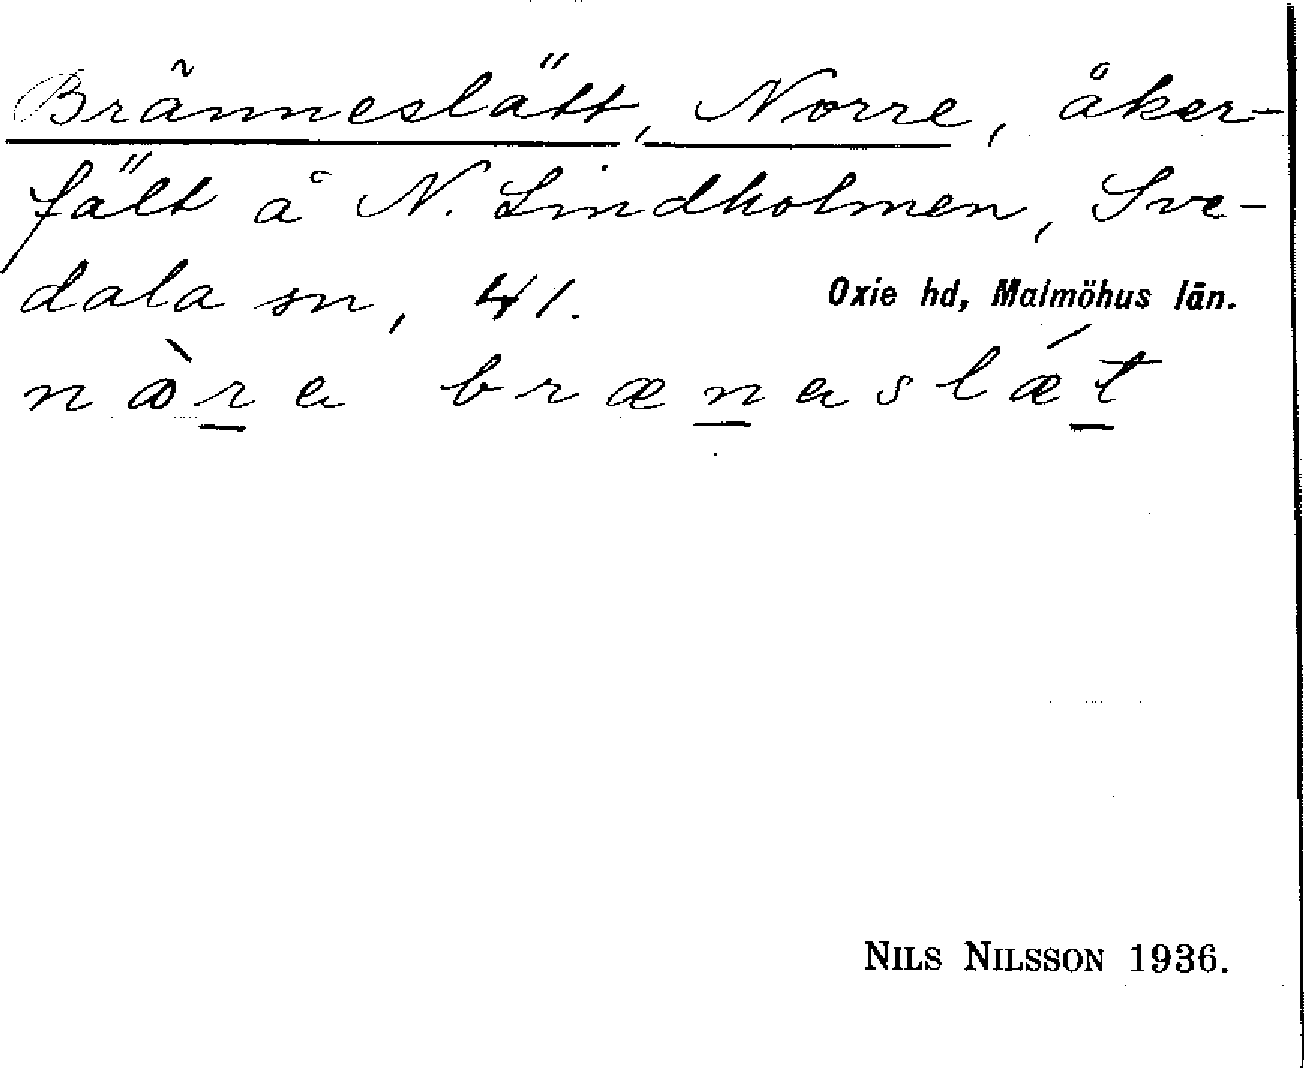 Bränneslätt, Norre, åker-
fält å N. Lindholmen, Sve-
dala sn, 41. Oxie hd, Malmöhus län.
nòra brænaslǽt
NILS NILSSON 1936.